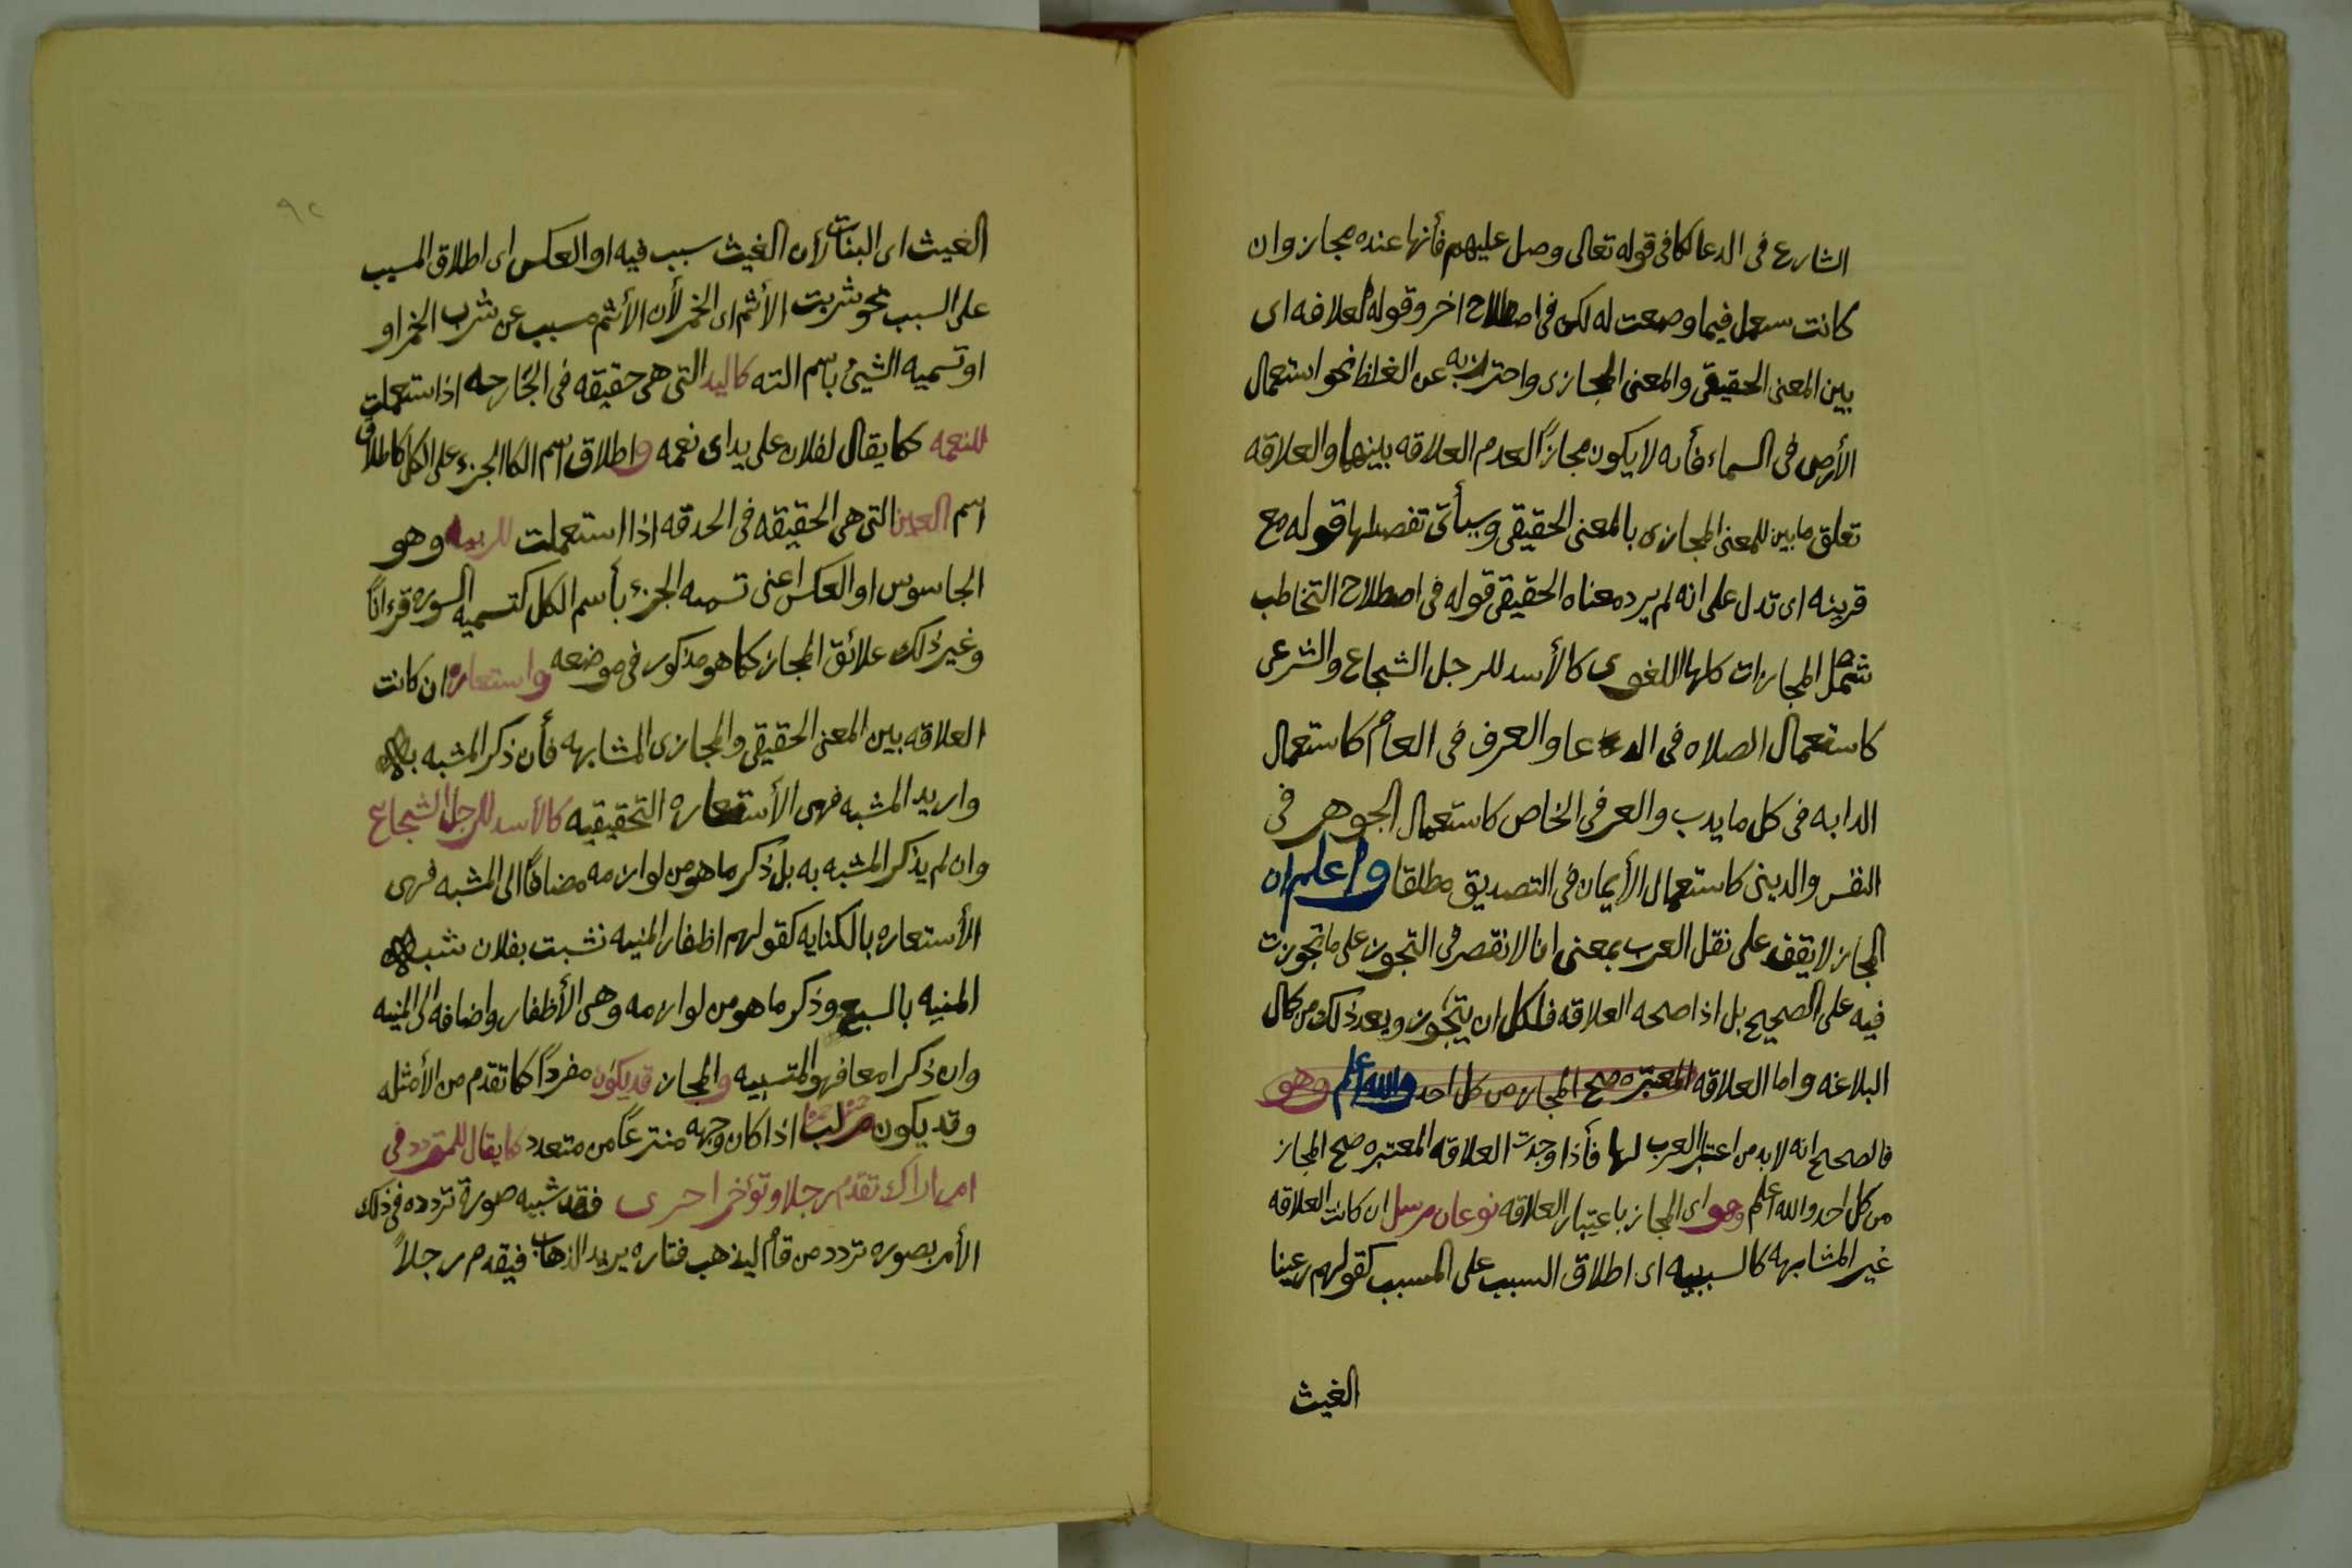 الشارع فى الدعا كما فى قوله تعالى وصل عليهم فأنها عنده مجاز وان
كانت ستعمل فيما وضعت له لكن فى اصطلاح اخر وقوله لعلاقه اى
بين المعنى الحقيقى والمعنى المجازى واحترز به عن الغلط نحو استعمال
الأرض فى السماء فأنه لا يكون مجازاً لعدم العلاقه بينهما والعلاقه
تعلق ما بين للمعنى المجازى بالمعنى الحقيقى وسيأتى تفصيلها قوله مع
قرينه اى تدل على انه لم يرد معناه الحقيقى قوله فى اصطلاح التخاطب
شمل المجازات كلها اللغوى كالأسد للرجل الشجاع والشرعى
كاستعمال الصلاه فى الدعا والعرف فى العام كاستعمال
الدابه فى كل ما يدب والعرفى الخاص كاستعمال الجوهر فى
النفس والدينى كاستعمال الأيمان فى التصديق مطلقا واعلم ان
المجاز لا يقف على نقل العرب بمعنى انا لا نقصر فى التجوز على ما تجوزت
فيه على الصحيح بل اذا صحه العلاقه فلكل ان يتجوز ويعد ذلك من كمال
البلاغه واما العلاقه المعتبره صح المجاز من كل احد والله اعلم وهو
فالصحيح انه لا بد من اعتبار العرب لها فأذا وجدت العلاقه المعتبره صح المجاز
من كل احد والله اعلم وهو اى المجاز باعتبار العلاقه نوعان مرسل ان كانت العلاقه
غير المشابهه كالسببيه اى اطلاق السبب على المسبب كقولهم رعينا
الغيث
٩٢
الغيث اى النبات لأن الغيث سبب فيه او العكس اى اطلاق المسبب
على السبب نحو شربت الأثم اى الخمر لأن الأثم مسبب عن شرب الخمر او
او تسميه الشيئ باسم الته كاليد التى هى حقيقه فى الجارحه اذا ستعملت
للنعمه كما يقال لفلان على يد اى نعمه واطلاق اسم الكا الجزء على الكل كاطلاق
اسم العين التى هى الحقيقه فى الحدقه اذا استعملت للربيه وهو
الجاسوس او العكس اعنى تسميه الجزء بأسم الكل كتسميه السوره قرءاناً
وغير ذلك علائق المجاز كما هو مذكور فى موضعه واستعاره ان كانت
العلاقه بين المعنى الحقيقى والمجازى المشابهه فأن ذكر المشبه به
واريد المشبه فهى الأستعاره التحقيقيه كالأسد للرجل الشجاع
وان لم يذكر المشبه به بل ذكر ما هو من لوازمه مضافاً الى المشبه فهى
الأستعاره بالكنايه كقولهم اظفار المنيه نشبت بفلان شبه
المنيه بالسبع وذكر ما هو من لوازمه وهى الأظفار واضافه الى المنيه
وان ذكرا معا فهو التشبيه والمجاز قد يكون مفرداً كما تقدم من الأمثله
وقد يكون مركبا اذا كان وجهه منتزعاً من متعدد كما يقال للمتردد فى
امر اراك تقدم رجلا وتؤخر اخرى فقد شبه صورة تردده فى ذلك
الأمر بصوره تردد من قام ليذهب فتاره يريد الذهاب فيقدم رجلاً